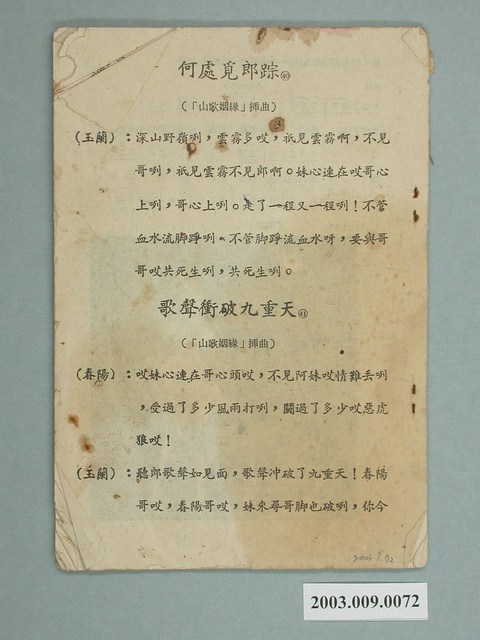 何處覓郎踪㊵
(「山歌姻緣」揷曲)
(玉蘭)：深山野嶺咧，雲霧多哎，祇見雲霧啊，不見
哥咧，祇見雲霧不見郎啊。妹心連在哎哥心
上咧，哥心上咧。走了一程又一程咧！不管
血水流脚踭咧、不管脚踭流血水呀，要與哥
哥哎共死生咧，共死生咧。
歌聲衝破九重天㊶
(「山歌姻緣」揷曲)
(春陽)：哎妹心連在哥心頭哎，不見阿妹哎情難丢咧
，受過了多少風雨打咧，鬪過了多少哎惡虎
狼哎！
(玉蘭)：聽郎歌聲如見面，歌聲冲破了九重天！春陽
哥哎，春陽哥哎，妹來尋哥脚也破咧，你今
2003.009.0072